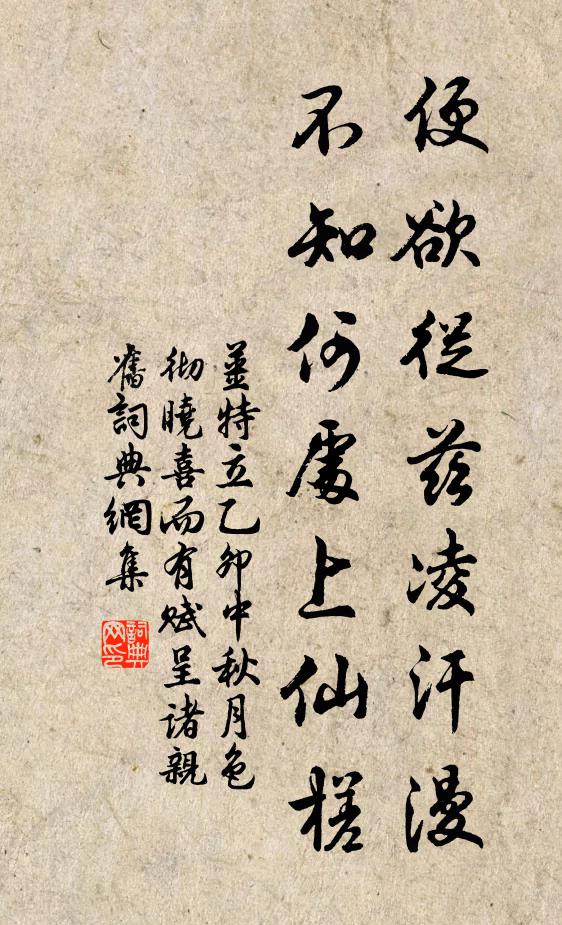 便欲從茲凌汗漫
不知何處上仙槎
姜特立乙卯中秋月色
彻曉喜而有赋呈诸親
舊詞典網集
詞典
网印